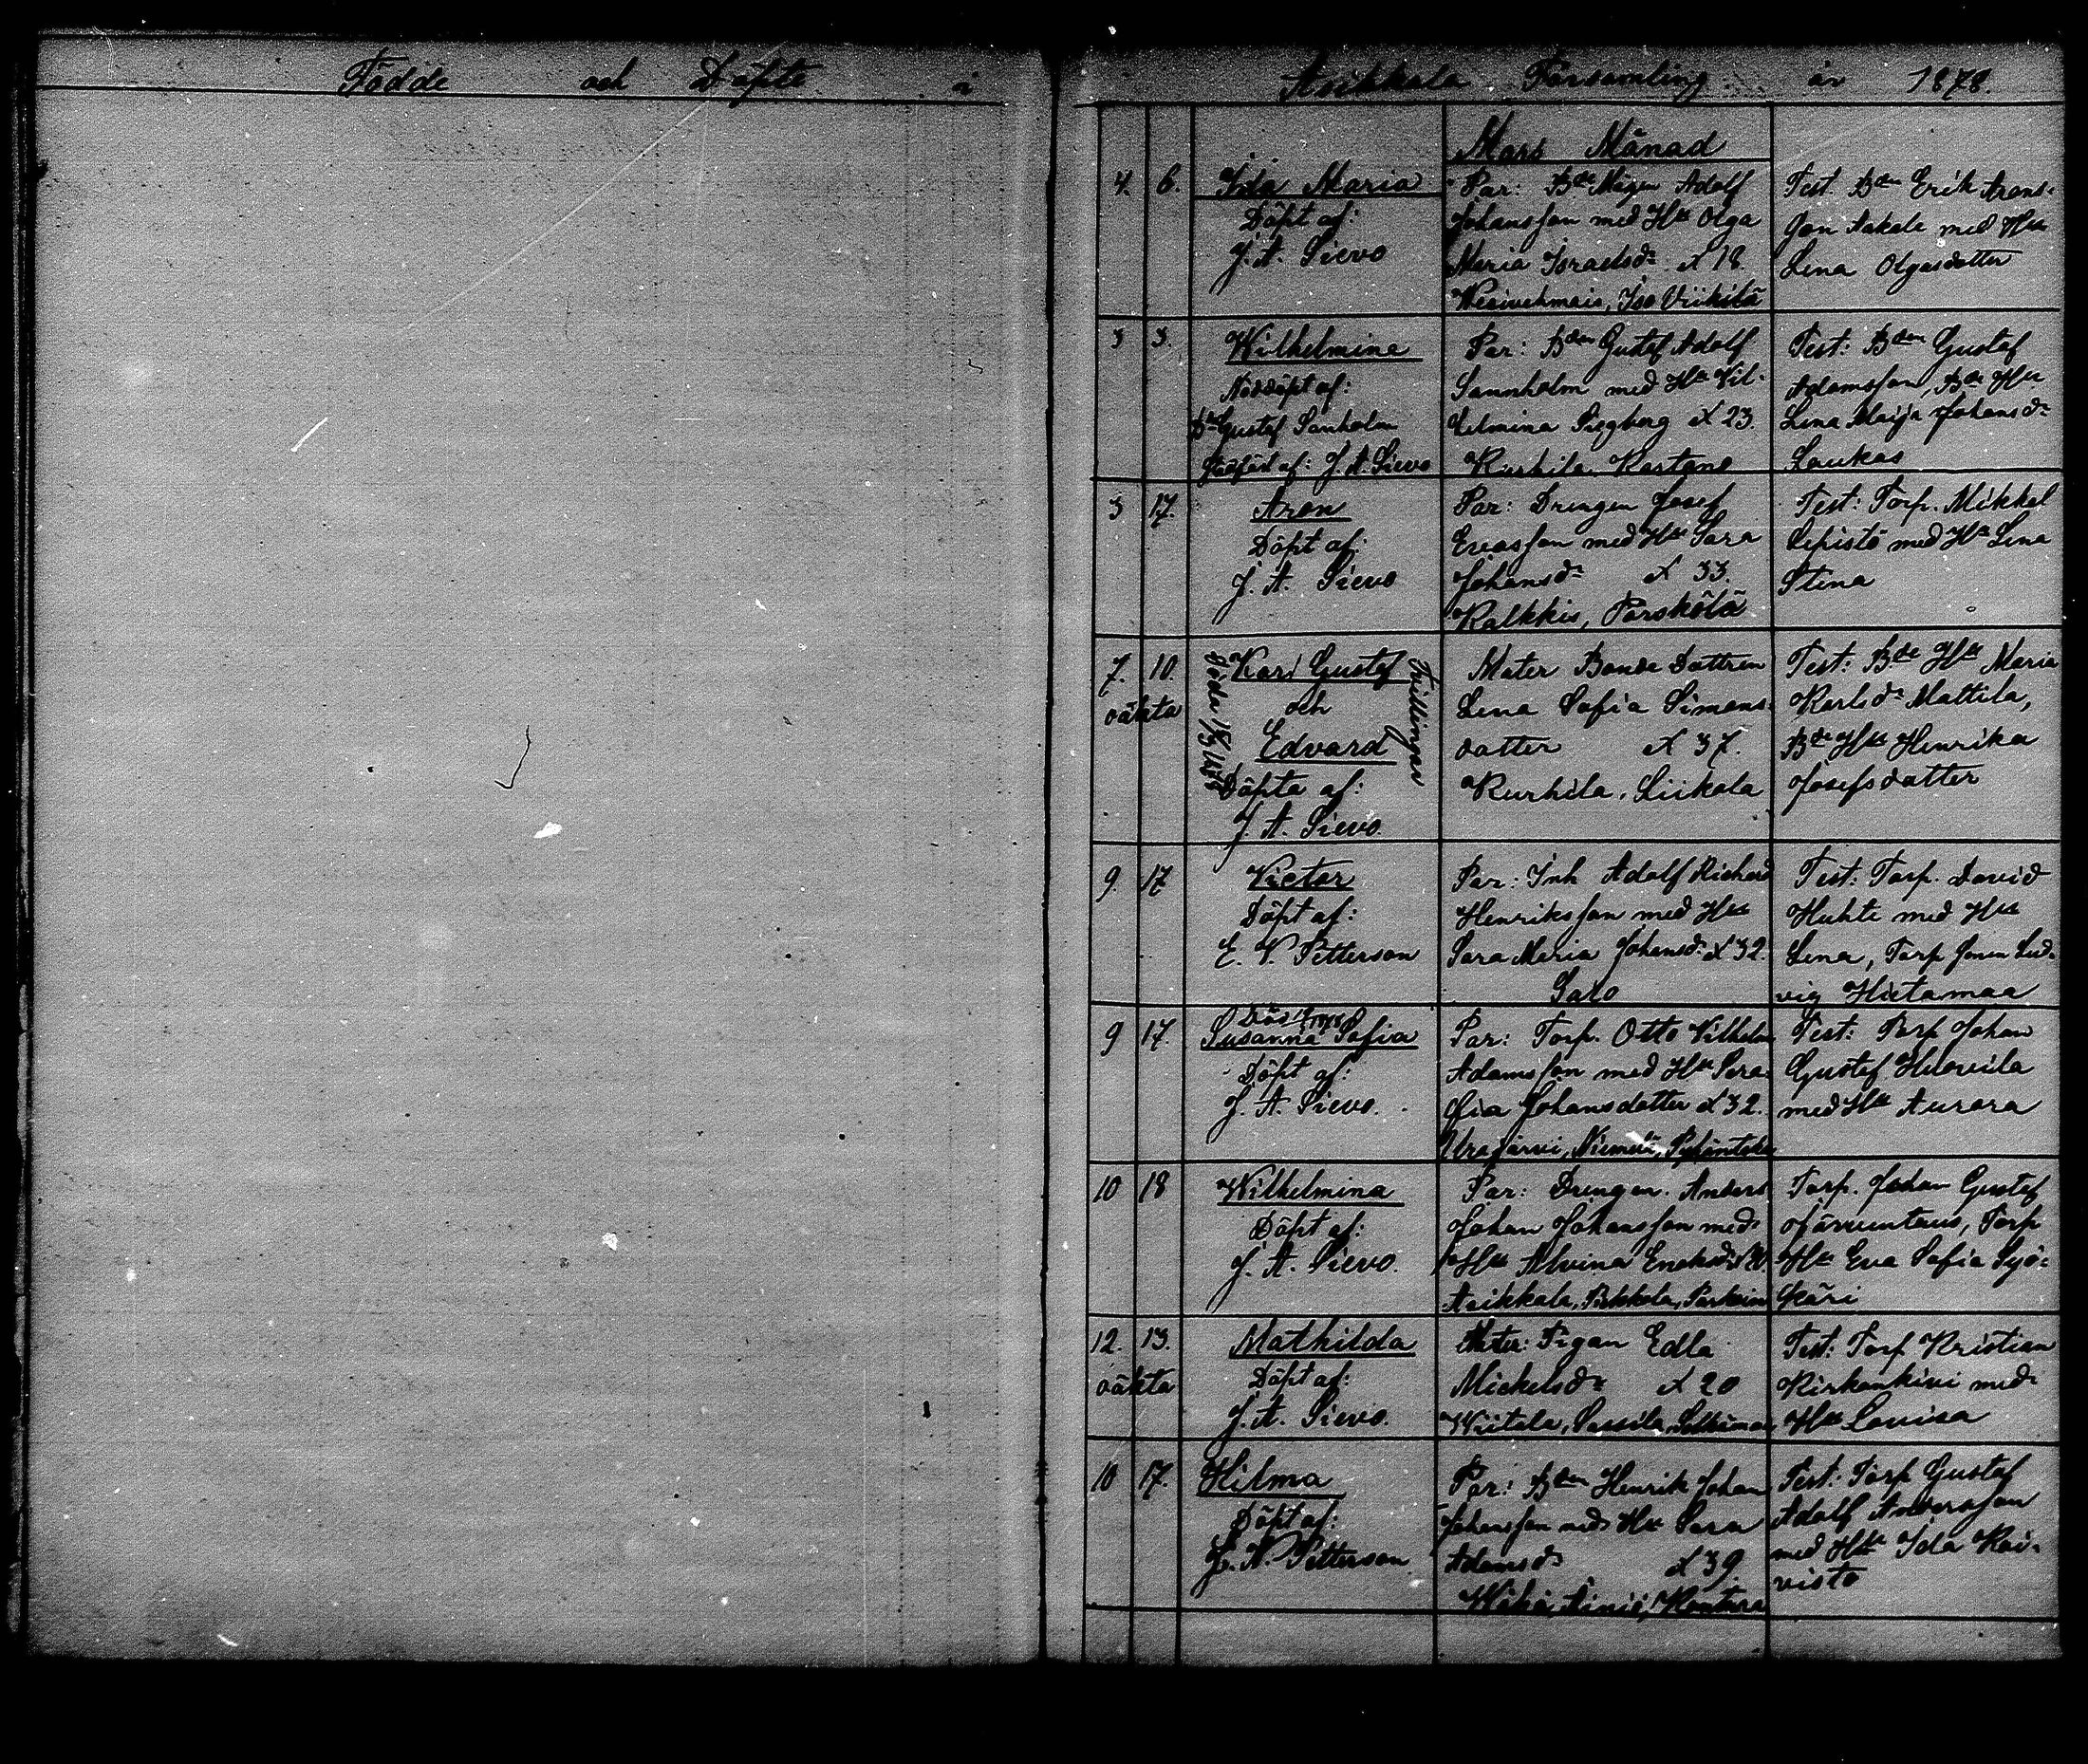 Födde och Döpte i Asikkala Församling år 1878.
Mars Månad
4. 6. Ida Maria
Döpt af:
J. A. Sievo
Par: Bde Mågen Adolf
Johansson med Hu Olga
Maria Israelsdr. A 18.
Wesivehmais, Iso Viikilä
Test. Bden Erik Arons-
son Aakala med Hu
Lena Olgasdotter
3 3. Wilhelmine
Nöddöpt af:
Gustaf Sanholm
Stadfäst af: J. A. Sievo
Par: Bden Gustaf Adolf
Sannholm med Hu Vil-
helmina Siegberg A 23.
Kurhila Kastane
Test: Bden Gustaf
Adamsson, Bde Hu
Lena Maija Johansdr
Laukas
3 17. Aron
Döpt af:
J. A. Sievo
Par: Drengen Josef
Ericsson med Hu Sara
Johansdr A 33.
Kalkkis, Pärskölä
Test: Torp. Mikkel
Lepistö med Hu Lena
Stina
7. 10. Karl Gustaf
oäkta
och
Edvard
Döpta af:
J. A. Sievo
Trillingar
Mater Bonde Dottren
Lena Sofia Simons-
dotter A 37.
Kurhila, Liikala
Test: Bde Hu Maria
Karlsdr Mattila,
Bde Hu Henrika
Josefsdotter
9. 17 Victor
Döpt af:
E. V. Petterson
Par: Inh Adolf Richard
Henriksson med Hu
Sara Maria Johansdr A 32.
Salo
Test: Torp. David
Huhte med Hu
Lena, Torp Sonen Lud-
vig Hietamaa
9 17. Susanna Sofia
Döpt af:
J. A. Sievo.
Par: Torp. Otto Vilhelm
Adamsson med Hu Sera-
fia Johansdotter A 32.
Urajärvi, Niemelä,
Test: Torp Johan
Gustaf Helovila
med Hu Aurora
10 18 Wilhelmina
Döpt af:
J. A. Sievo.
Par: Drengen. Anders
Johan Johansson med
Hu Alvina
Asikkala, Pekkola,
Torp. Johan Gustaf
Ojärventaus, Torp
Hu Eva Sofia Sjö-
skäri
12. 13. Mathilda
oäkta
Döpt af:
J. A. Sievo.
Mater: Pigan Edla
Mickelsdr A 20
Wiitala, Sassila,
Test: Torp Kristian
Kirkonkivi med
Hu Lovisa
10 17. Hilma
Döpt af:
E. V. Petterson
Par: Bden Henrik Johan
Johansson med Hu Sara
Adamsdr A 39.
Test: Torp Gustaf
Adolf Andersson
med Hu Ida Koi-
visto